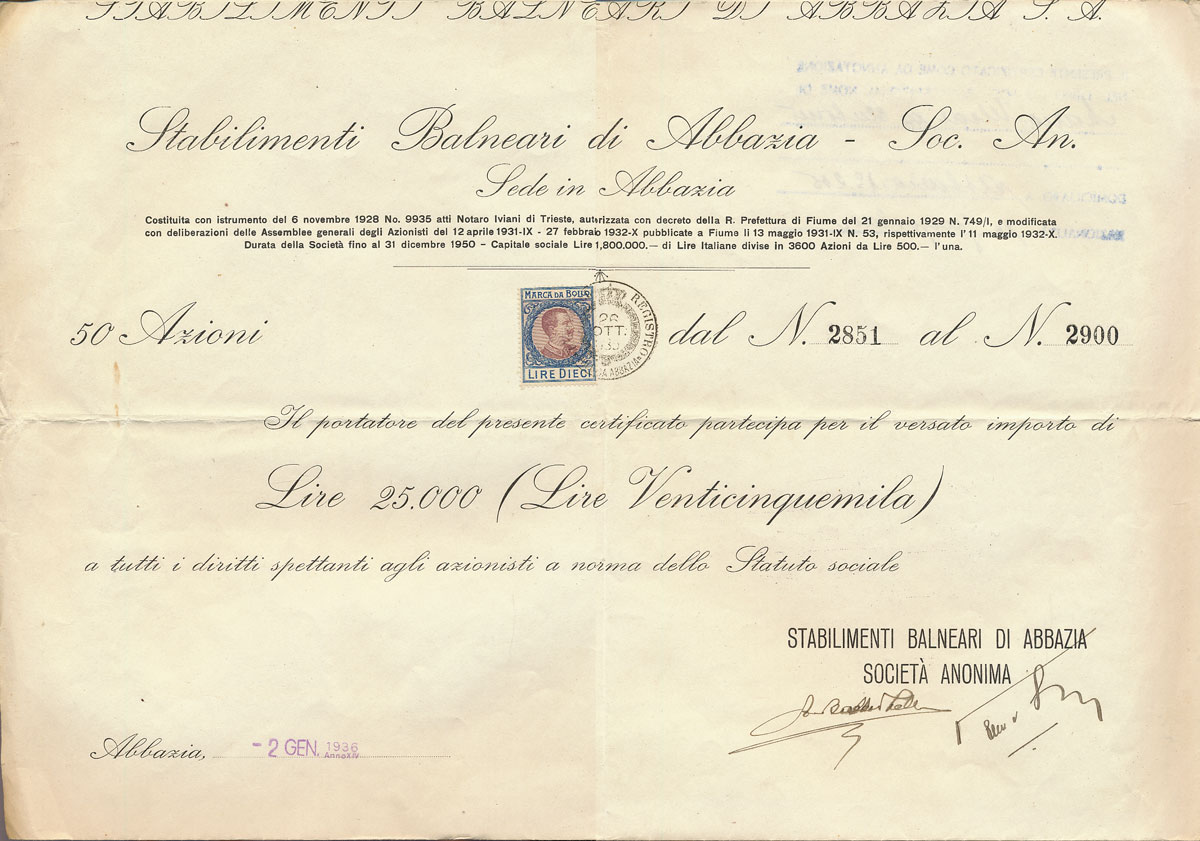 STABILIMENTI BALNEARI DI ABBAZIA S. A.
Stabilimenti Balneari di Abbazia - Soc. An.
Sede in Abbazia
Costituita con istrumento del 6 novembre 1928 No. 9935 atti Notaro Iviani di Trieste, autorizzata con decreto della R. Prefettura di Fiume del 21 gennaio 1929 N. 749/I, e modificata
con deliberazioni delle Assemblee generali degli Azionisti del 12 aprile 1931-IX - 27 febbraio 1932-X pubblicate a Fiume li 13 maggio 1931-IX N. 53, rispettivamente l'11 maggio 1932-X.
Durata della Società fino al 31 dicembre 1950 - Capitale sociale Lire 1,800.000.— di Lire Italiane divise in 3600 Azioni da Lire 500.— l'una.
MARCA DA BOLLO
LIRE DIECI
REGISTRO
26
OTT.
ABBAZIA
50 Azioni
dal N. 2851 al N. 2900
Il portatore del presente certificato partecipa per il versato importo di
Lire 25.000 (Lire Venticinquemila)
a tutti i diritti spettanti agli azionisti a norma dello Statuto sociale
STABILIMENTI BALNEARI DI ABBAZIA
SOCIETÀ ANONIMA
Abbazia, - 2 GEN. 1936
Anno XIV